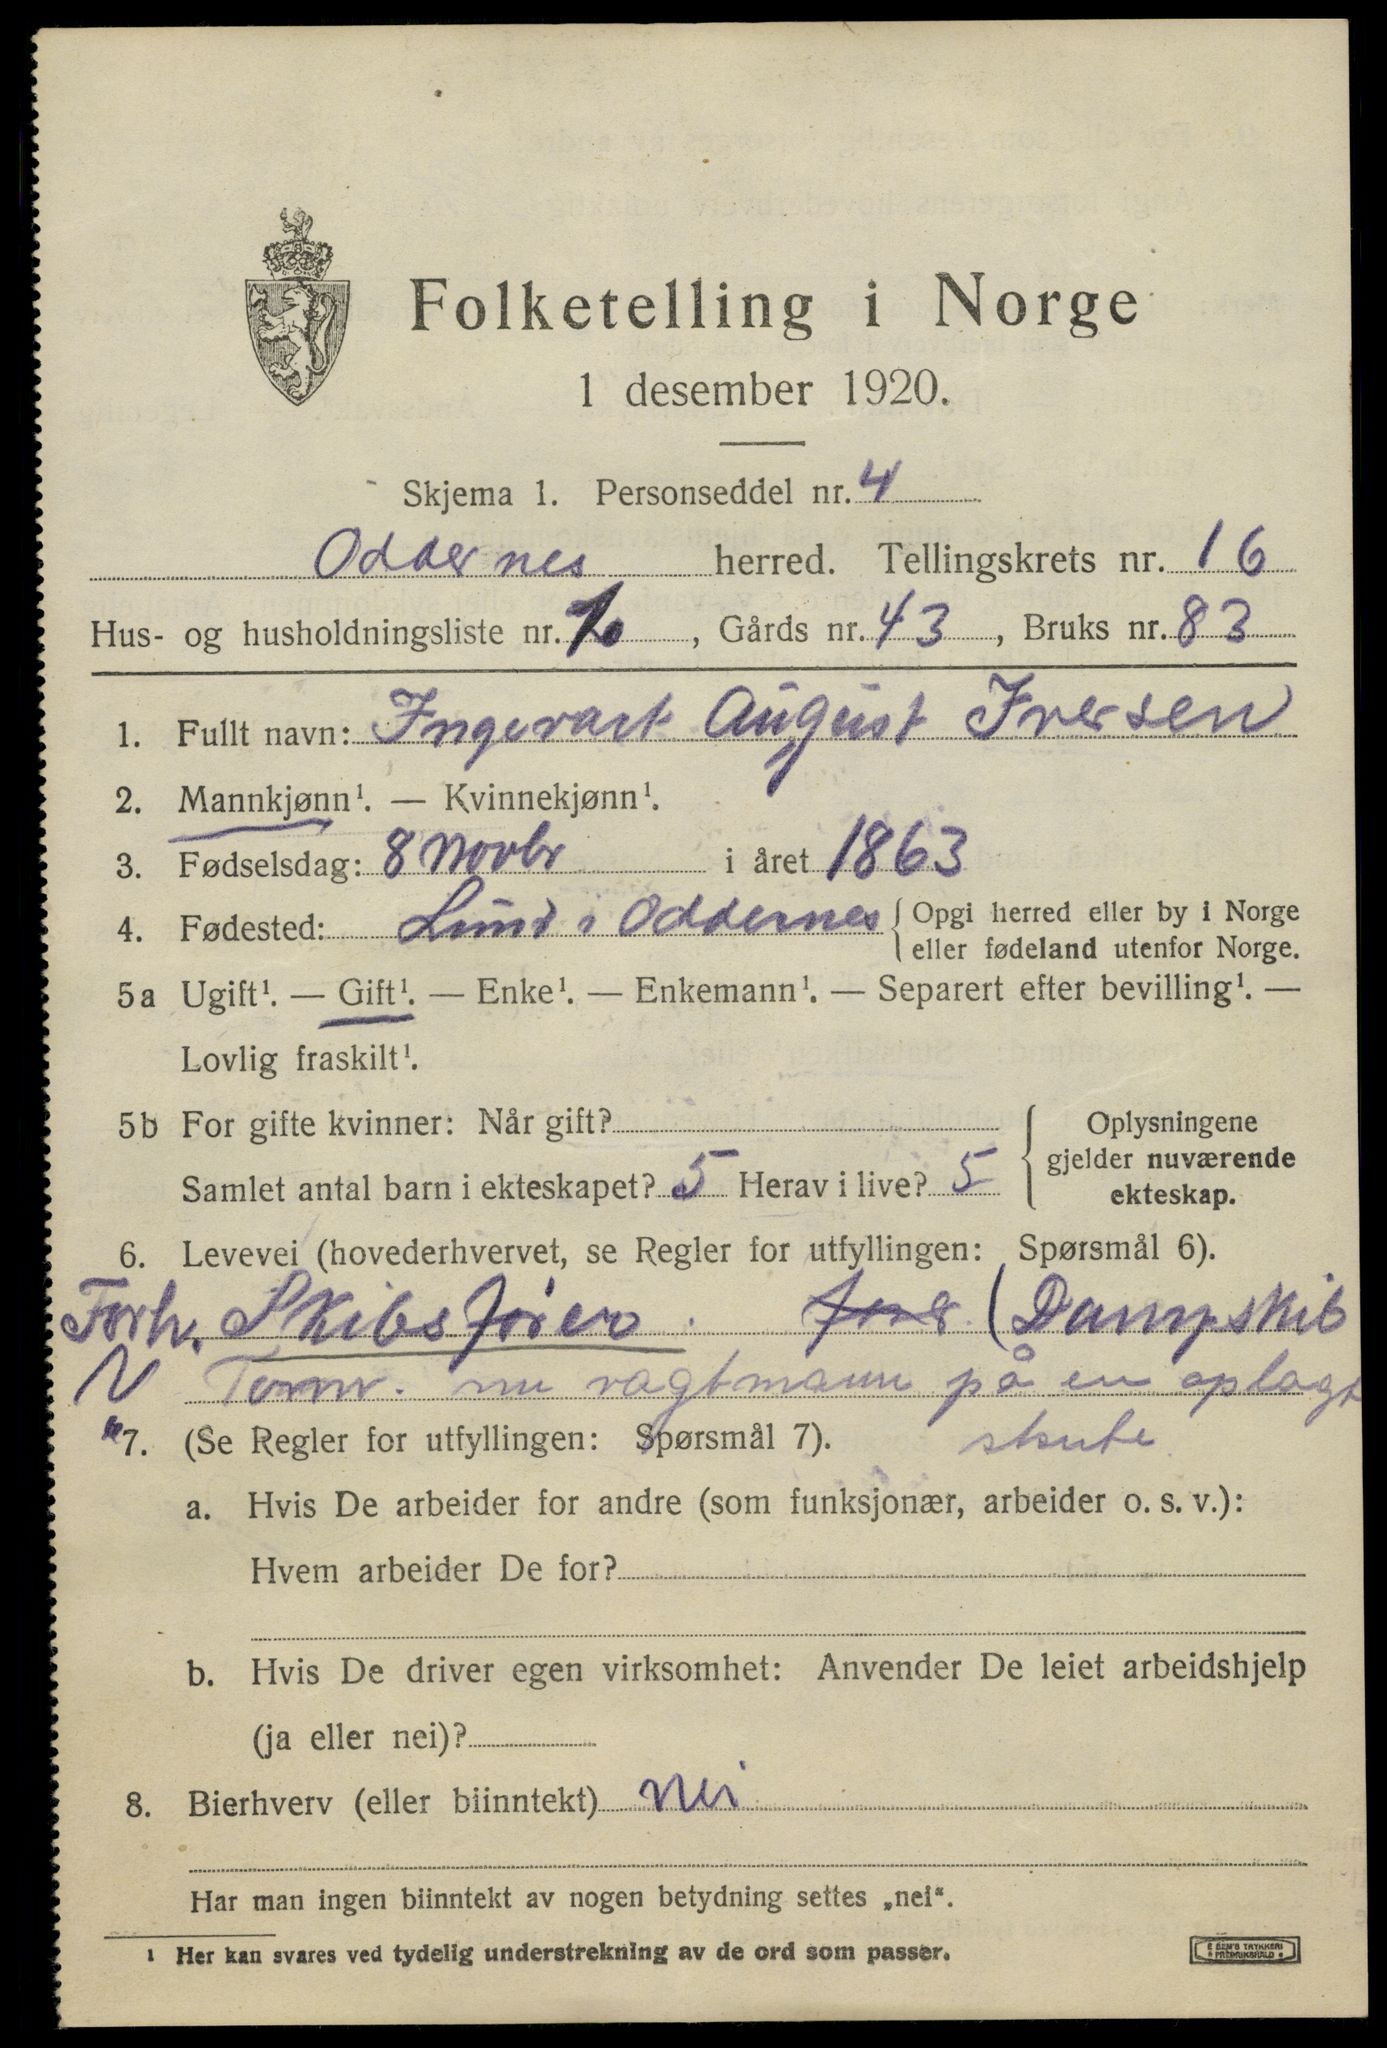 Folketelling i Norge
1 desember 1920.
Skjema 1. Personseddel nr. 4
Oddernes herred. Tellingskrets nr. 16
Hus- og husholdningsliste nr. , Gårds nr. 43, Bruks nr. 83
1. Fullt navn: Ingevart August Iversen
2. Mannkjønn¹. — Kvinnekjønn¹.
3. Fødselsdag: 8 Novbr i året 1863
4. Fødested: Lund i Oddernes { Opgi herred eller by i Norge
eller fødeland utenfor Norge.
5a Ugift¹. — Gift¹. — Enke¹. — Enkemann¹. — Separert efter bevilling¹. —
Lovlig fraskilt¹.
5b For gifte kvinner: Når gift?
Samlet antal barn i ekteskapet? 5 Herav i live? 5
{ Oplysningene
gjelder nuværende
ekteskap.
6. Levevei (hovederhvervet, se Regler for utfyllingen: Spørsmål 6).
Forh. Skibsfører. (Dampskib
nu vagtmann på en oplagt
skute
7. (Se Regler for utfyllingen: Spørsmål 7).
a. Hvis De arbeider for andre (som funksjonær, arbeider o. s. v.):
Hvem arbeider De for?
b. Hvis De driver egen virksomhet: Anvender De leiet arbeidshjelp
(ja eller nei)?
8. Bierhverv (eller biinntekt) Nei
Har man ingen biinntekt av nogen betydning settes „nei“.
¹ Her kan svares ved tydelig understrekning av de ord som passer.
E SEM'S TRYKKERI
FREDRIKSHALD